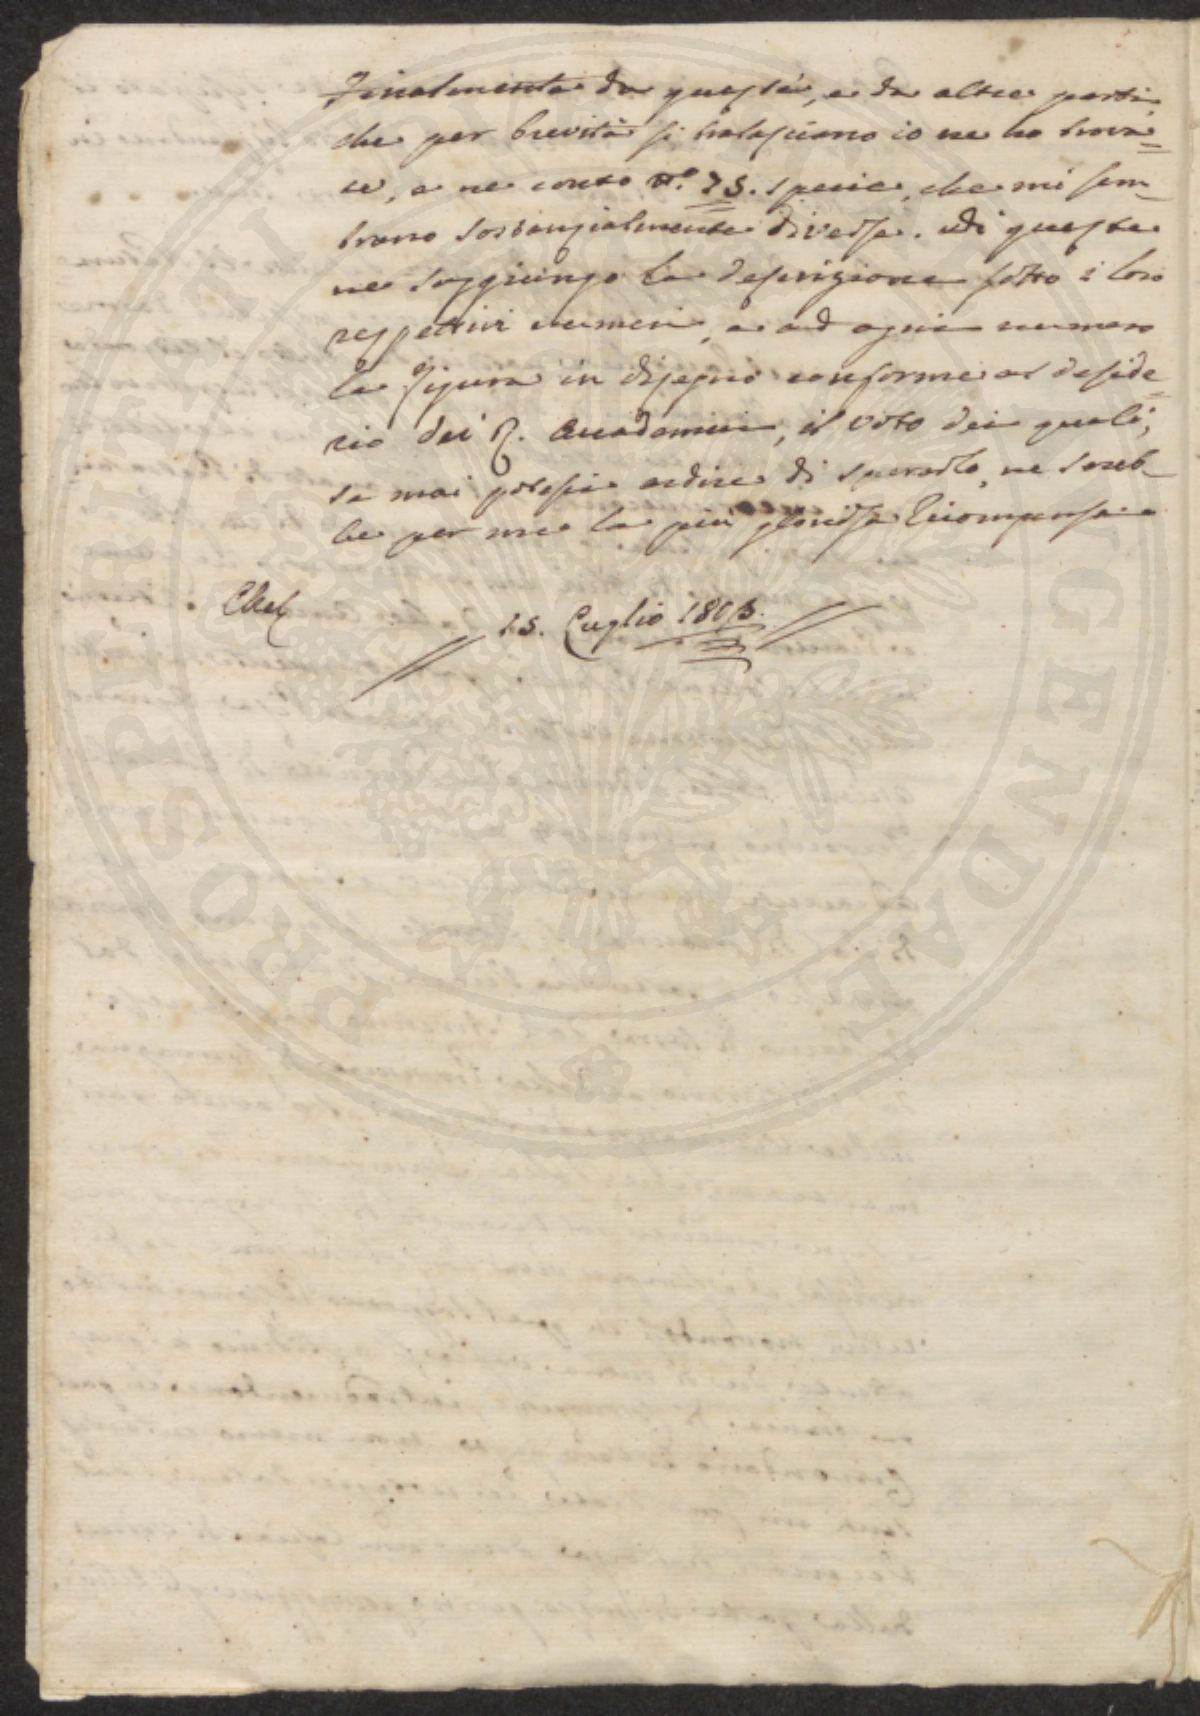 Finalmente da queste, e da altre parti,
che per brevità si tralasciano io ne ho trova=
te, e ne conto n.° 75. specie, che mi sem=
brano sostanzialmente diverse. Di queste
ne soggiungo la descrizione sotto i loro
respettivi numeri, e ad ogni numero
la figura in disegno conforme al deside=
rio dei R. Accademici, il voto dei quali,
se mai potessi ardire di sperarlo, ne sareb=
be per me la più gloriosa ricompensa.
15. Luglio 1803.
PROSPERITATI PUBLICAE AUGENDAE